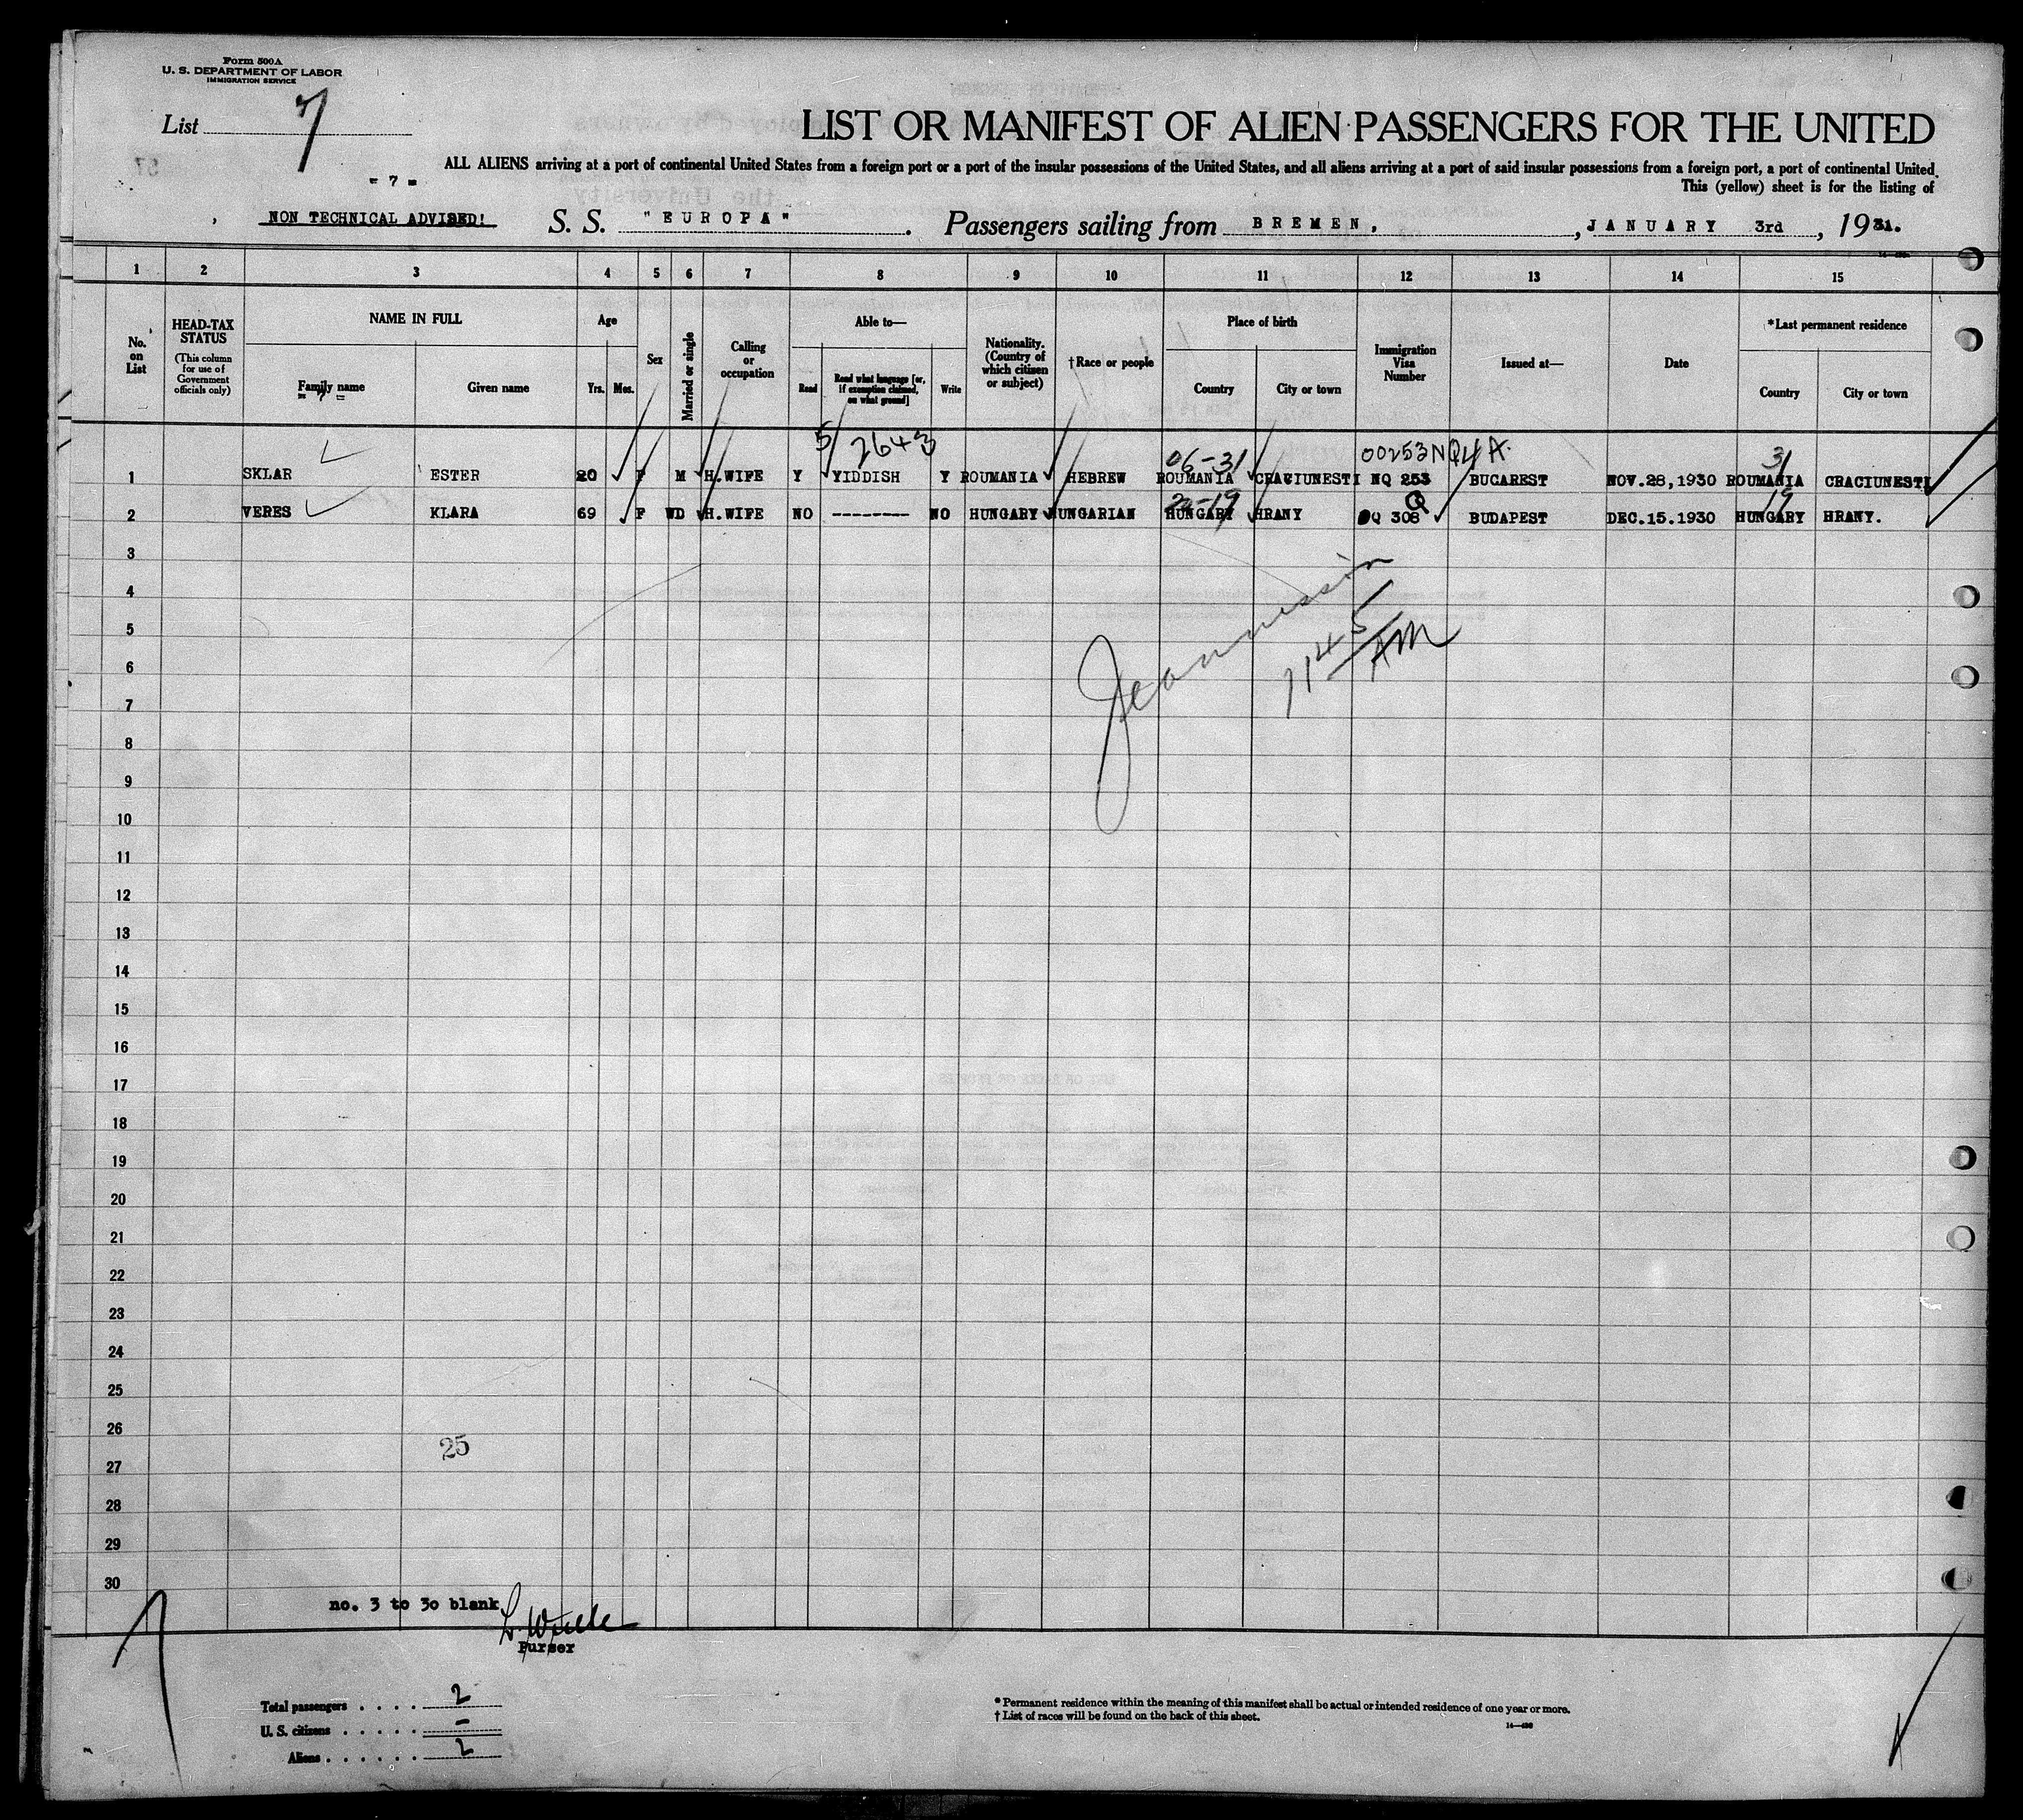 Form 500A
U. S. DEPARTMENT OF LABOR
IMMIGRATION SERVICE
List 7
LIST OR MANIFEST OF ALIEN PASSENGERS FOR THE UNITED
ALL ALIENS arriving at a port of continental United States from a foreign port or a port of the insular possessions of the United States, and all aliens arriving at a port of said insular possessions from a foreign port, a port of continental United
= 7 =
This (yellow) sheet is for the listing of
NON TECHNICAL ADVISED! S. S. "EUROPA". Passengers sailing from BREMEN, , JANUARY 3rd , 1931.
1 2 3 4 5 6 7 8 9 10 11 12 13 14 15
No. on List
HEAD-TAX STATUS (This column for use of Government officials only)
NAME IN FULL
Family name
= 7 =
Given name
Age
Yrs. Mos.
Sex
Married or single
Calling or occupation
Able to—
Read
Read what language [or, if exemption claimed, on what ground]
Write
Nationality. (Country of which citizen or subject)
†Race or people
Place of birth
Country City or town
Immigration Visa Number
Issued at—
Date
*Last permanent residence
Country City or town
5/ 2643 06-31 00253NQ4A. 31
1 SKLAR ESTER 20 F M H.WIFE Y YIDDISH Y ROUMANIA HEBREW ROUMANIA CRACIUNESTI NQ 253 BUCAREST NOV.28,1930 ROUMANIA CRACIUNESTI
22-19 Q 19
2 VERES KLARA 69 F WD H.WIFE NO -------- NO HUNGARY HUNGARIAN HUNGARY HRANY Q 308 BUDAPEST DEC.15.1930 HUNGARY HRANY.
3
4
5
1145
AM
6
7
8
9
10
11
12
13
14
15
16
17
18
19
20
21
22
23
24
25
26
25
27
28
29
30
no. 3 to 30 blank
Purser
Total passengers . . . . 2
U. S. citizens . . . . . –
Aliens . . . . . . 2
* Permanent residence within the meaning of this manifest shall be actual or intended residence of one year or more.
† List of races will be found on the back of this sheet.